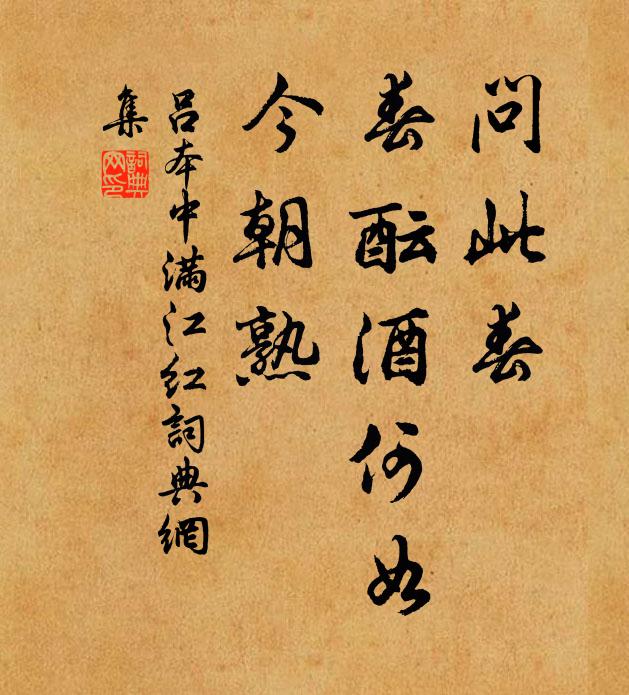 問此春
春酝酒何如
今朝熟
呂本中滿江红詞典網
集
詞典
网印